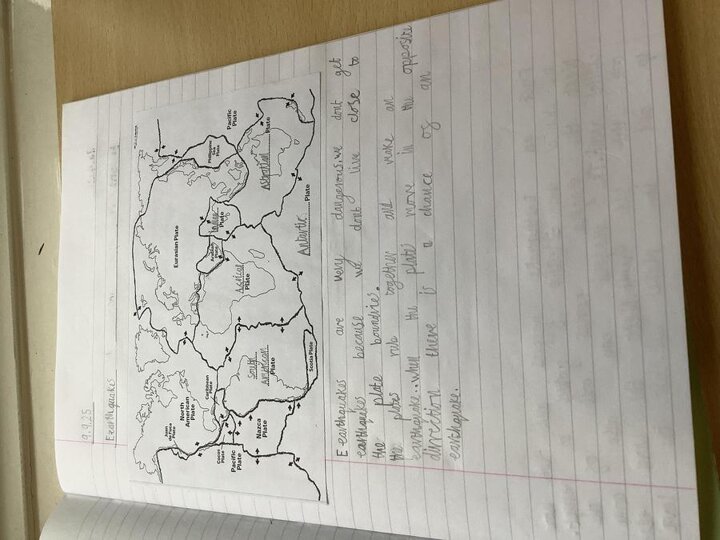 9.9.25
Earthquakes
Eurasian Plate
North
American
Plate
Juan
de Fuca
Plate
Caribbean
Plate
Cocos
Plate
Pacific
Plate
Nazca
Plate
South
American
Plate
Scotia Plate
African
Plate
Arabian
Plate
Indian
Plate
Philippine
Sea
Plate
Pacific
Plate
Australian
Plate
Antarctic Plate
E earthquakes are very dangerous. We dont get
earthquakes because we dont live close to
the plate boundries.
the plates rub together and make an
earthquake. When the plates move in the opposite
dirrection there is a chance of an
earthquake.